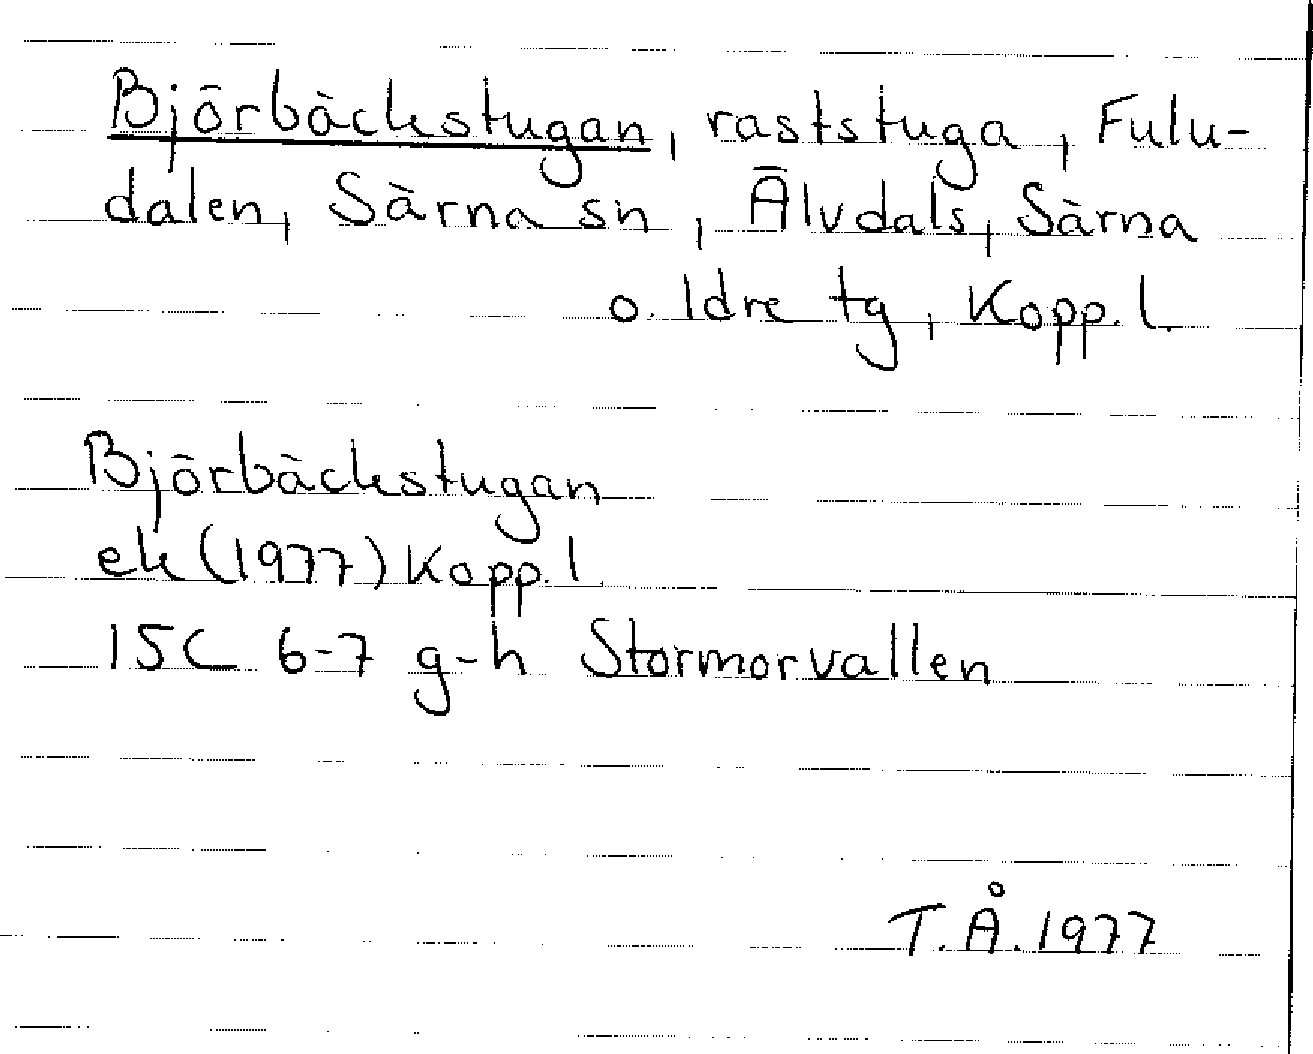 Björbäckstugan, raststuga, Fulu-
dalen, Särna sn, Älvdals, Särna
o. Idre tg, Kopp. l.
Björbäckstugan
ek (1977) Kopp. l
15C 6-7 g-h Stormorvallen
T.Å. 1977